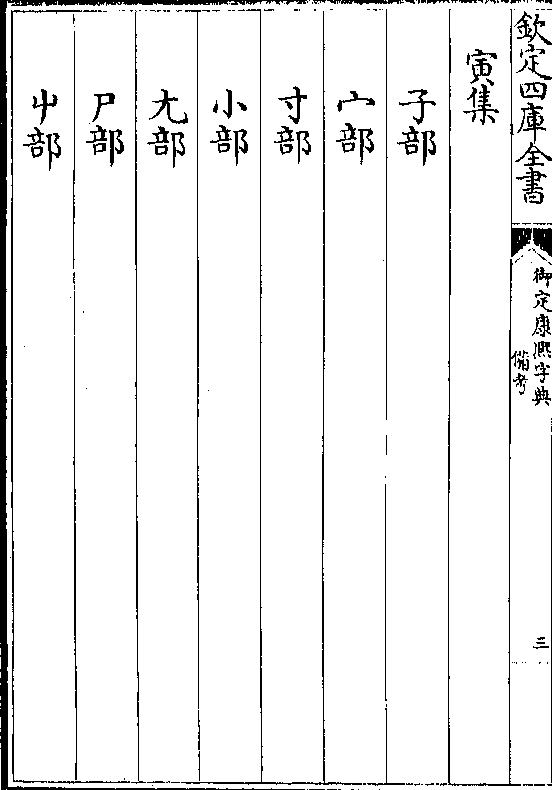 欽定四庫全書
御定康熙字典
備考
三
寅集
子部
宀部
寸部
小部
尢部
尸部
屮部